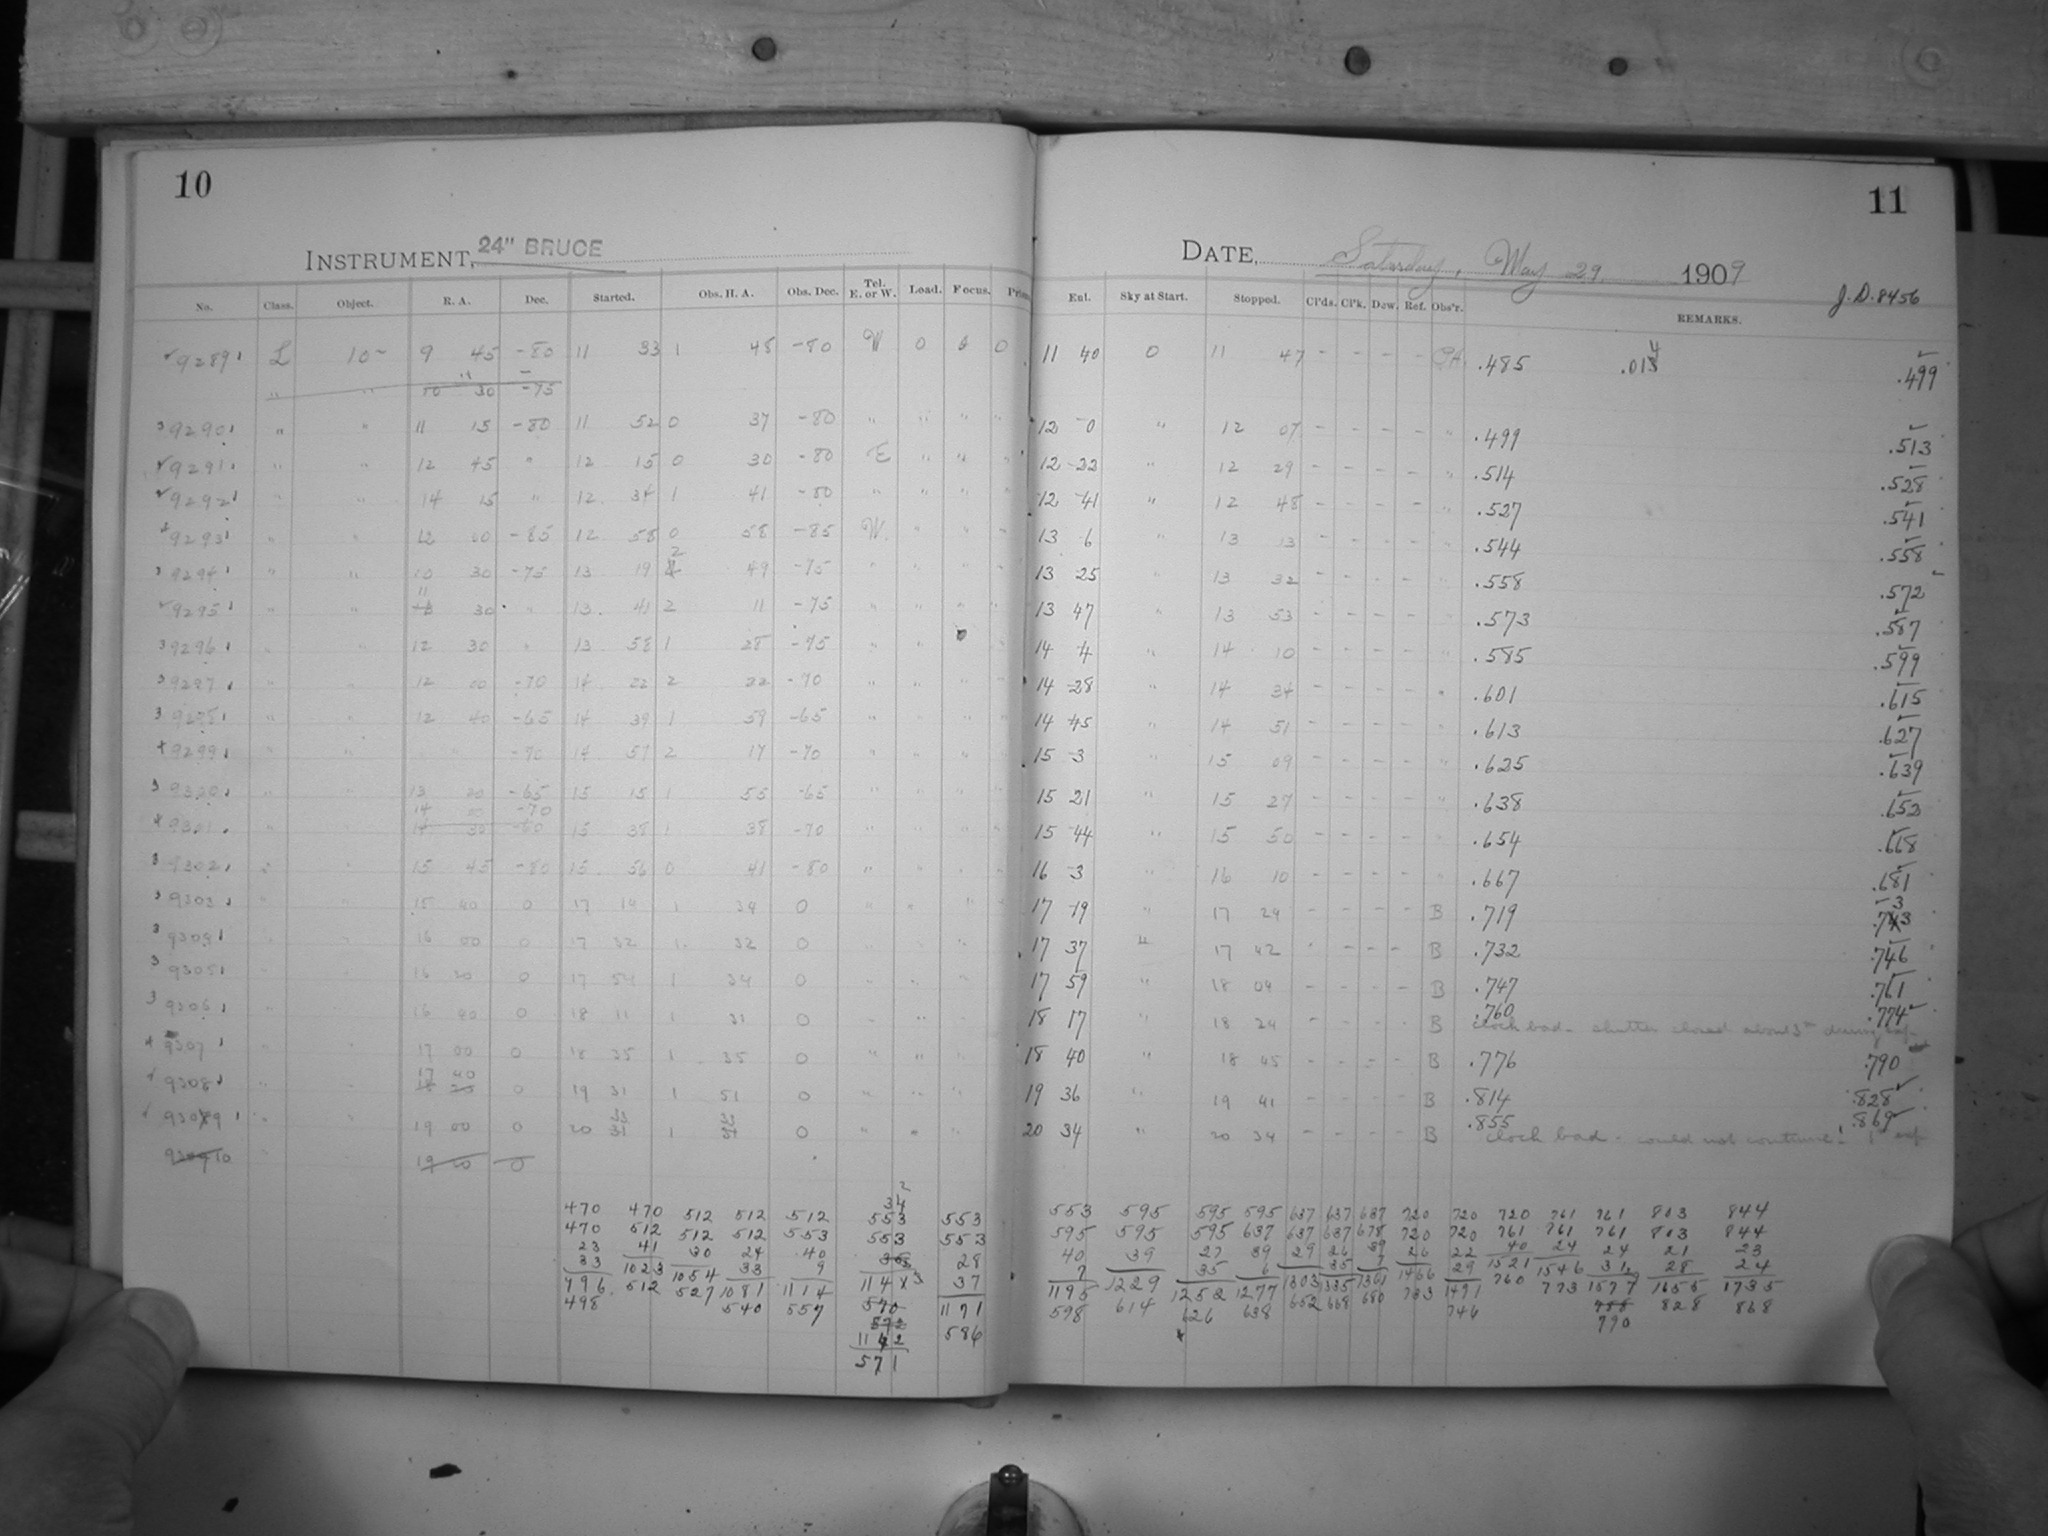 10
INSTRUMENT, 24" BRUCE
No. Class. Object. R. A. Dec. Started. Obs. H. A. Obs. Dec. Tel. E. or W. Load. Focus.
9289 L 10- 9 45 -80 11 33 1 48 -80 W 0 0 0
" " 10 30 -75
9290 " " 11 15 -80 11 52 0 37 -80 " " " "
9291 " " 12 45 " 12 15 0 30 -80 E " " "
9292 " " 14 15 " 12 34 1 41 -80 " " " "
9293 " " 12 00 -85 12 58 0 58 -85 W " " "
9294 " " 10 30 -75 13 19 2 49 -75 " " " "
9295 " " 11 30 " 13 41 2 11 -75 " " " "
9296 " " 12 30 " 13 58 1 28 -75 " "
9297 " " 12 00 -70 14 22 2 22 -70 " " " "
9298 " " 12 40 -65 14 39 1 59 -65 " " " "
9299 " " " -70 14 57 2 17 -70 " " " "
9300 " " 13 20 -65 15 15 1 55 -65 " " " "
14 00 -70
9301 " " 14 30 -60 15 38 1 38 -70 " " " "
9302 15 45 -80 15 56 0 41 -80 " " " "
9303 " " 15 40 0 17 14 1 34 0 " " " "
9304 " " 16 00 0 17 32 1 32 0
9305 16 20 0 17 54 1 34 0
9306 16 40 0 18 11 1 31 0
9307 17 00 0 18 35 1 35 0 " " "
17 40
9308 0 19 31 1 51 0
9309 19 00 0 20 33 1 33 0
19 20 0
470 470 512 512 512 553 553
470 512 512 512 553 553 553
23 41 30 24 40 28
33 1023 1054 33 9 37
996 512 527 1081 1114 1171
498 540 557 586
1142
571
11
DATE, Saturday, May 29 1909
J.D. 8456
Ent. Sky at Start. Stopped. Cl'ds. Cl'k. Dew. Ref. Obs'r. REMARKS.
11 40 0 11 47 - - - - .485 .014 .499
12 0 " 12 07 - - - - " .499 .513
12 22 " 12 29 - - - - " .514 .528
12 41 " 12 48 - - - - " .527 .541
13 6 " 13 13 - - - - " .544 .558
13 25 " 13 32 - - - - " .558 .572
13 47 " 13 53 - - - - " .573 .587
14 4 " 14 10 - - - - " .585 .599
14 28 " 14 34 - - - - " .601 .615
14 45 " 14 51 - - - - " .613 .627
15 3 " 15 09 - - - - " .625 .639
15 21 " 15 27 - - - - " .638 .652
15 44 " 15 50 - - - - " .654 .668
16 3 " 16 10 - - - - " .667 .681
17 19 " 17 24 - - - - B .719 .733
17 37 " 17 42 - - - - B .732 .746
17 59 " 18 04 - - - - B .747 .761
18 17 " 18 24 - - - - B .760 .774
clock bad - shutter closed about 3m during exp.
18 40 " 18 45 - - - - B .776 .790
19 36 " 19 41 - - - - B .814 .828
20 34 " 20 34 - - - - B .855 .869
clock bad - could not continue! 1m exp
553 595 595 595 637 637 637 720 720 720 761 761 803 844
595 595 595 637 637 637 678 720 720 761 761 761 803 844
40 39 27 39 29 26 39 26 22 40 24 24 21 23
7 35 6 35 7 29 31 28 24
1195 1229 1252 1277 1303 1335 1361 1466 1491 1521 1546 1577 1655 1735
598 614 626 638 652 668 680 733 746 760 773 788 828 868
790